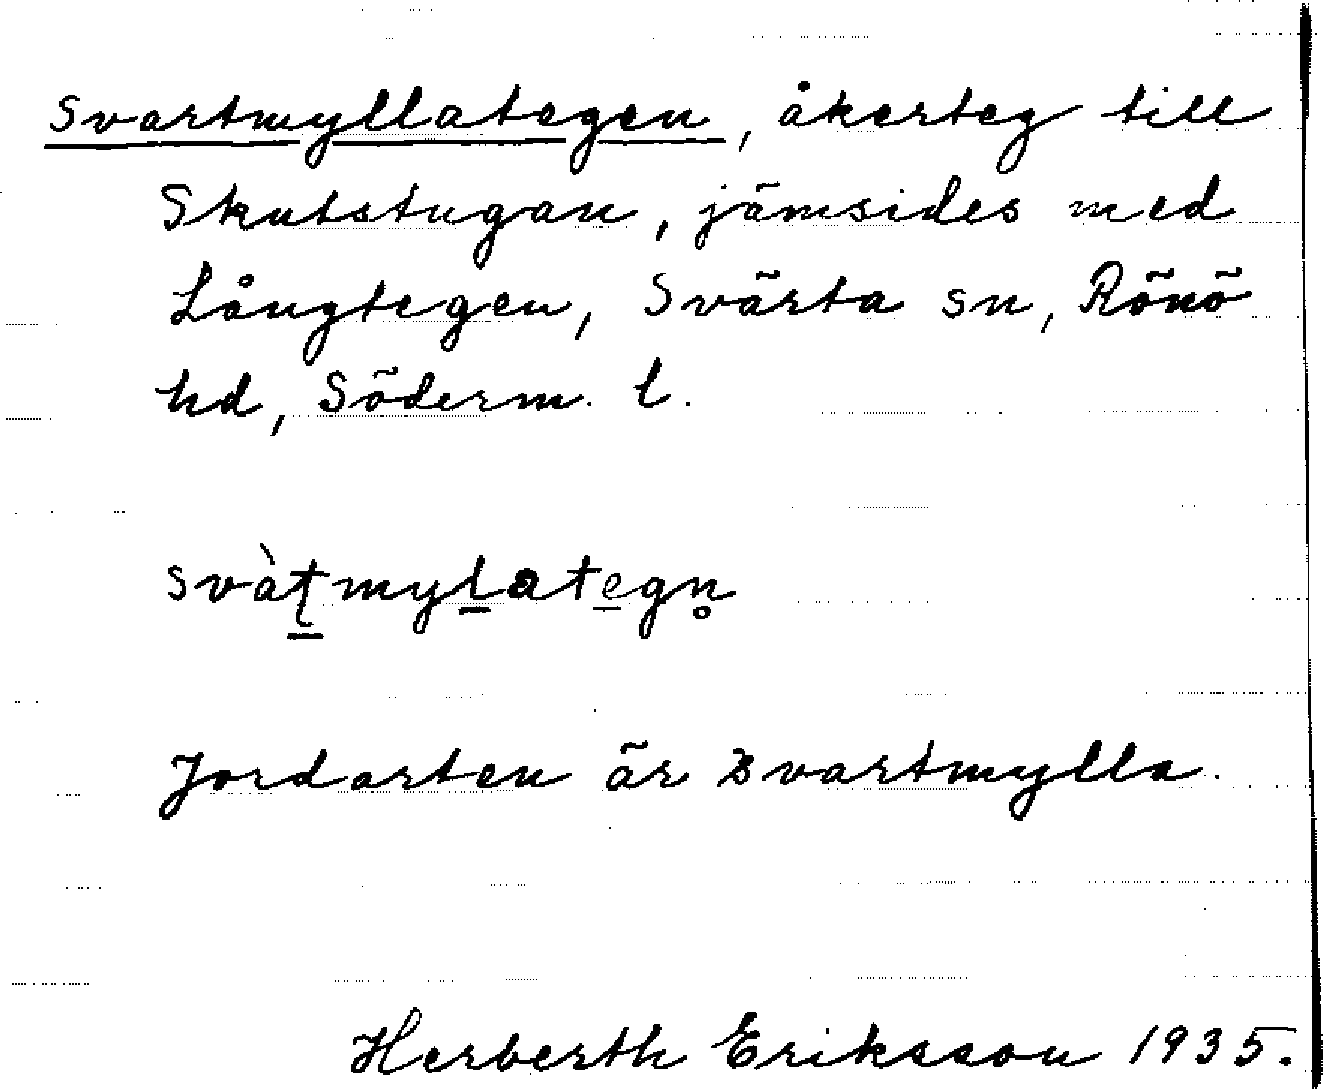 Svartmyllategen, åkerteg till
Skutstugan, jämsides med
Långtegen, Svärta sn, Rönö
hd, Söderm. l.
svàʈmylategn̥
Jordarten är svartmylla.
Herberth Eriksson 1935.